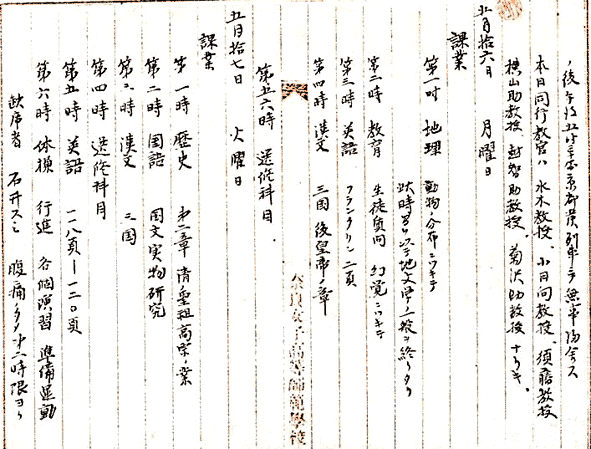 ノ後午後五時 京都発列車ニテ無事帰舎ス
本日同行教官ハ 水木教授、小日向教授、須藤教授
横山助教授 越智助教授、菊沢助教授 ナリキ、
五月拾六日 月曜日
課業
第一時 地理 動物ノ分布ニツキテ
此時ヲ以テ地文学ノ一般ヲ終リタリ
第二時 教育 生徒質問 幻覚ニツキテ
第三時 英語 フランクリン二頁
第四時 漢文 三国 後皇帝ノ章
第五六時 選修科目
五月拾七日 火曜日
課業
第一時 歴史 第二章 清ノ聖祖高宗ノ業
第二時 国語 国文実物研究
第三時 漢文 三国
第四時 選修科目
第五時 英語 一一八頁ー一二〇頁
第六時 体操 行進 各個演習 準備運動
欠席者 石井スミ 腹痛ノタメ第二時限ヨリ
奈良女子高等師範學校